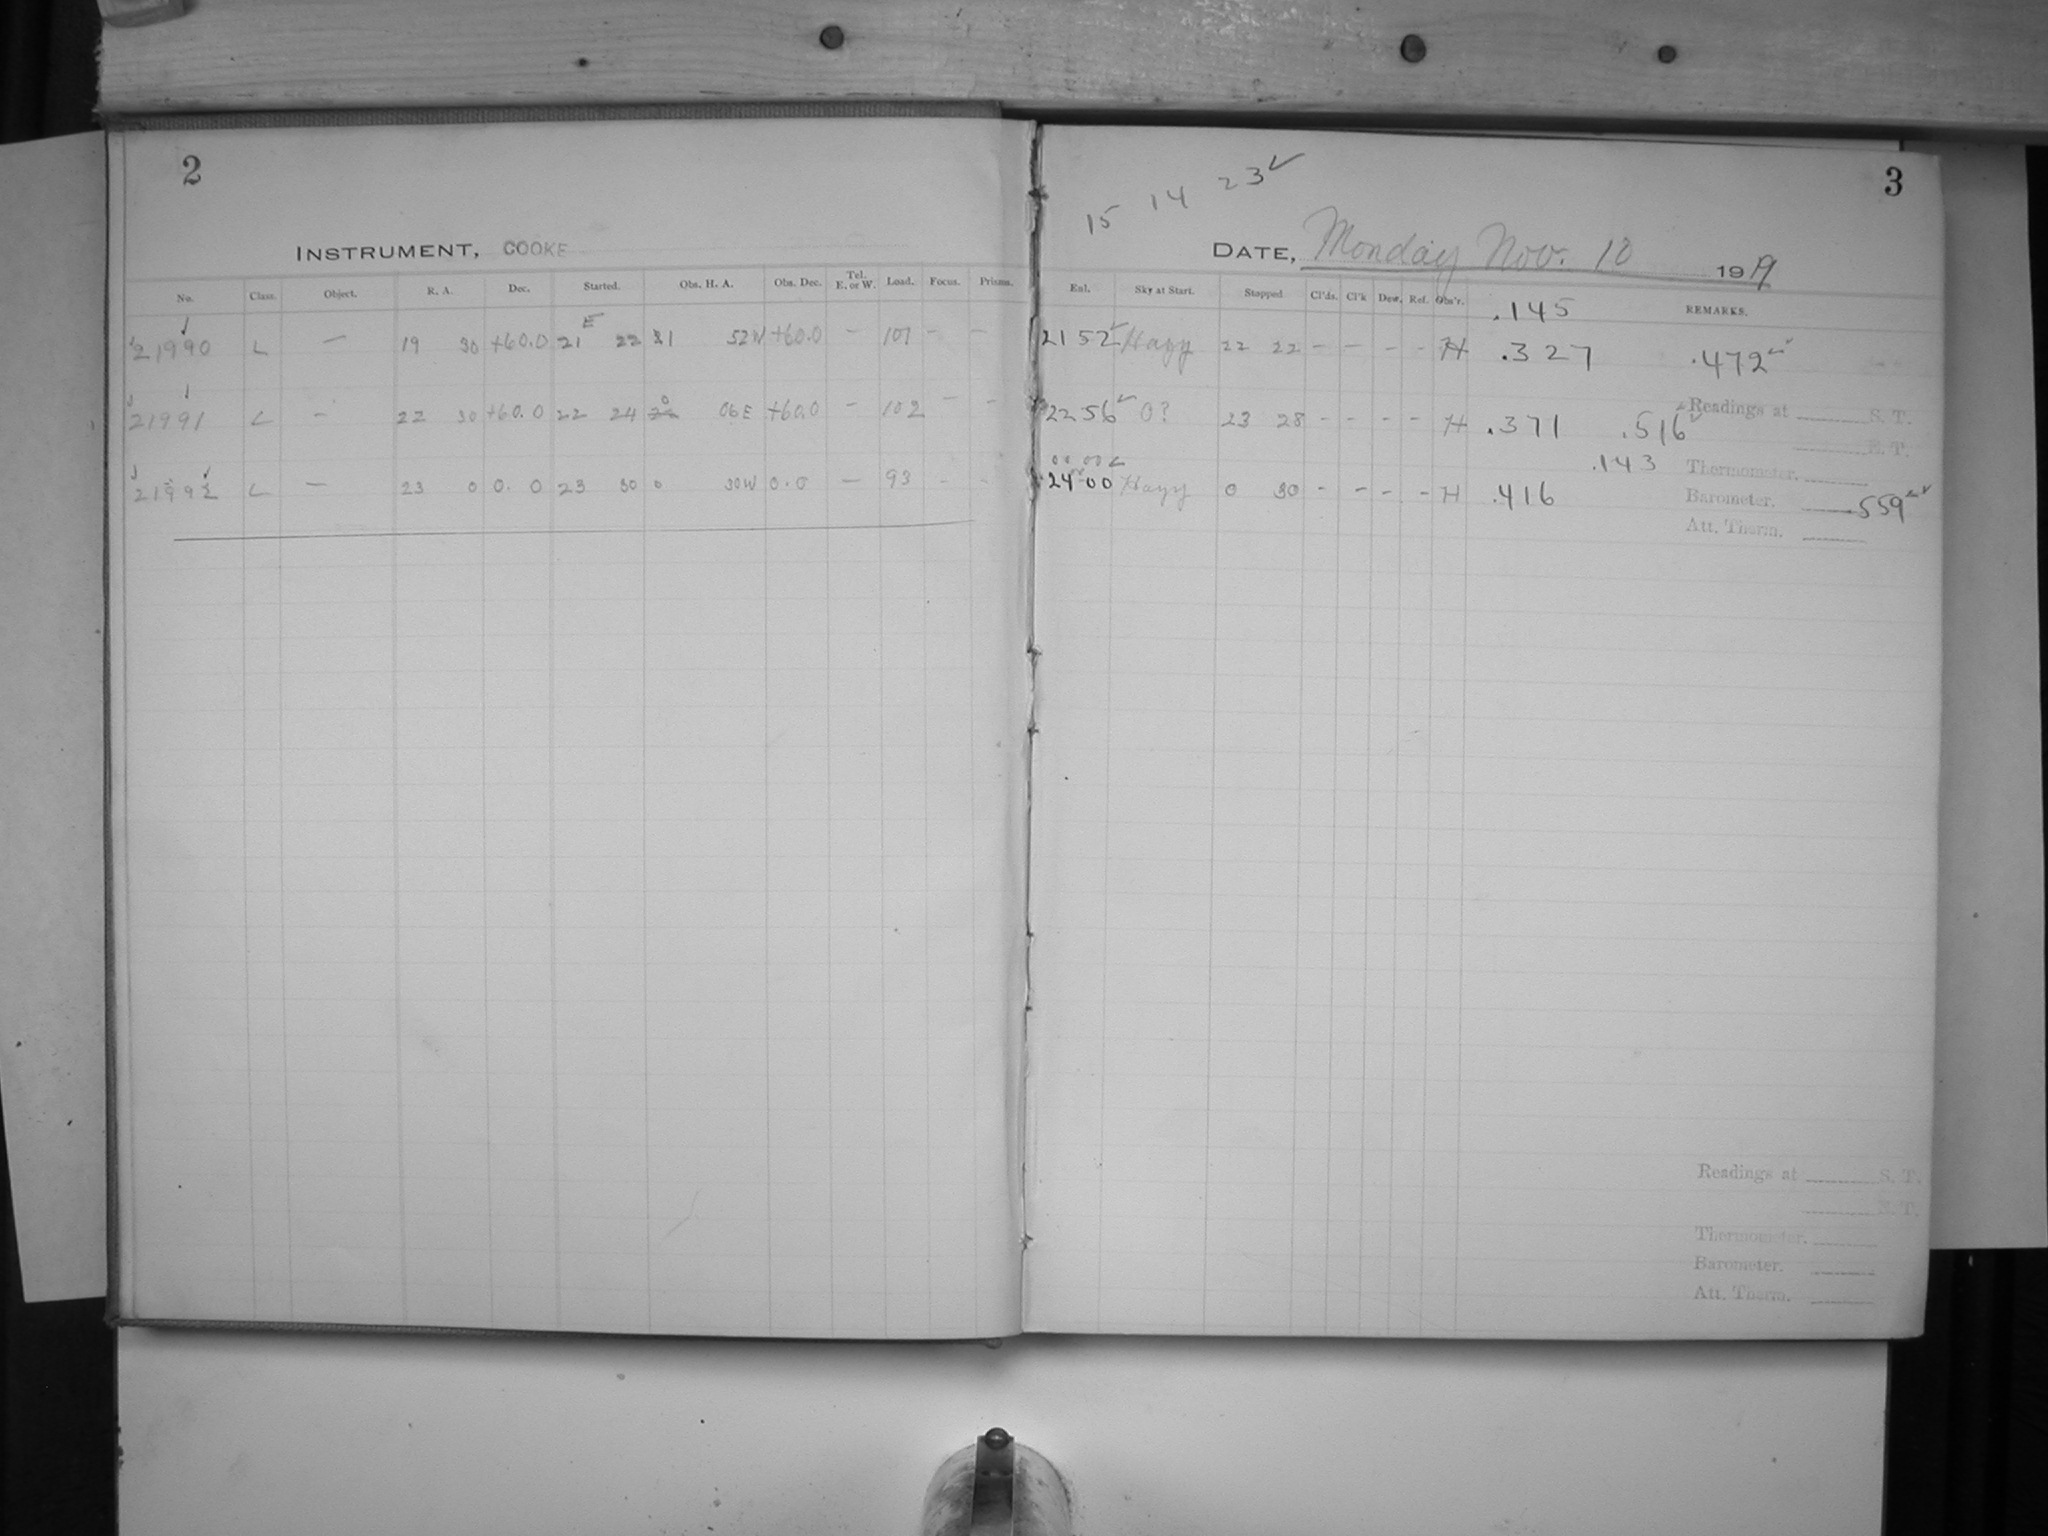 2
INSTRUMENT, COOKE
No. Class. Object. R. A. Dec. Started. Obs. H. A. Obs. Dec. Tel. E. or W. Load. Focus. Prisms.
E
21990 L — 19 30 +60.0 21 22 31 52W +60.0 — 101 — —
21991 L — 22 30 +60.0 22 24 0 06E +60.0 — 102 — —
21992 L — 23 0 0.0 23 30 0 30W 0.0 — 93 - -
3
15 14 23✓
DATE, Monday Nov. 10 1919
Enl. Sky at Start. Stopped Cl'ds. Cl'k Dew. Ref. Obs'r. REMARKS.
.145
21 52✓ Hazy 22 22 - - - - H .327 .472✓
Readings at S. T.
22 56✓ 0? 23 28 - - - - H .371 .516✓
M. T.
00 00✓ .143 Thermometer.
24 00 Hazy 0 30 - - - - H .416 Barometer. .559✓✓
Att. Therm.
Readings at S. T.
M. T.
Thermometer.
Barometer.
Att. Therm.